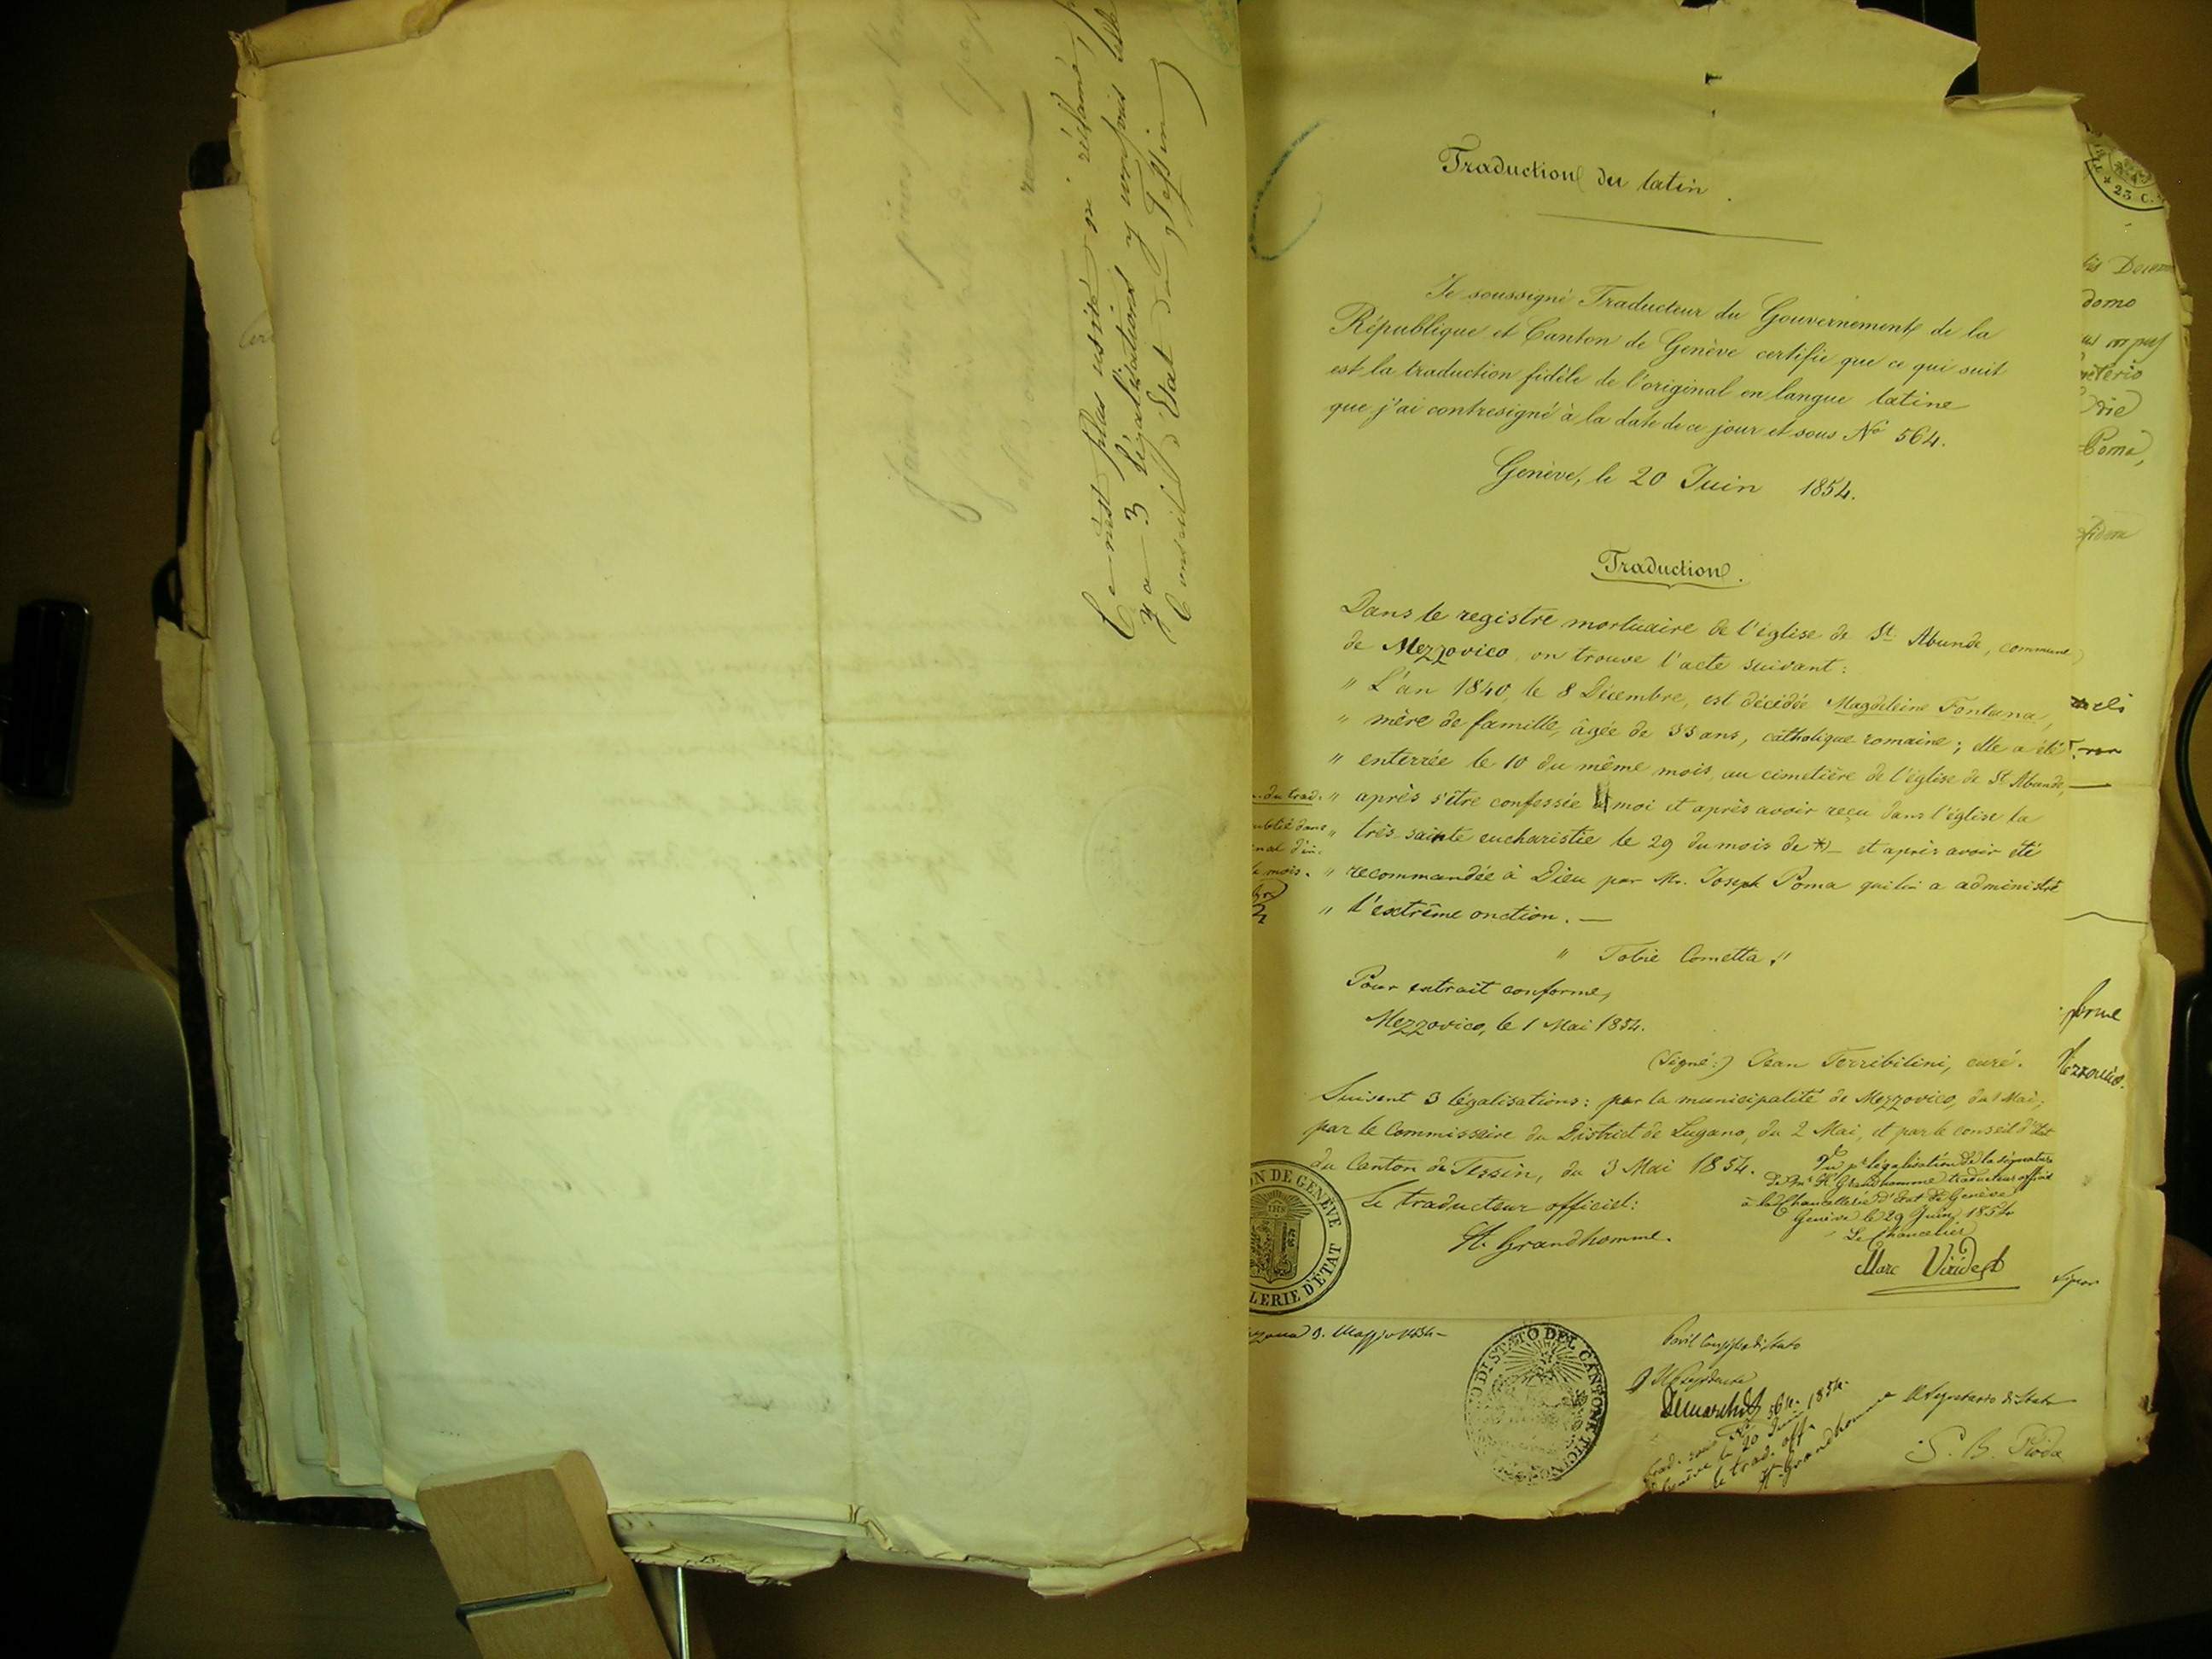 Ce n'est plus usité ni réclamé,
y a 3 légalisations y compris celle
Conseil d'Etat du Tessin)
Traduction du latin.
Je soussigné Traducteur du Gouvernement de la
République et Canton de Genève certifie que ce qui suit
est la traduction fidèle de l'original en langue latine
que j'ai contresigné à la date de ce jour et sous No 564.
Genève, le 20 Juin 1854.
Traduction.
Dans le registre mortuaire de l'église de St. Abunde, commune
de Mezzovico, on trouve l'acte suivant:
" L'an 1840, le 8 Décembre, est décédée Magdeleine Fontana,
" mère de famille, âgée de 35 ans, catholique romaine; elle a été
" enterrée le 10 du même mois, au cimetière de l'église de St. Abunde,
" après s'être confessée à moi et après avoir reçu dans l'église la
" très-sainte eucharistie le 29 du mois de *)_ et après avoir été
" recommandée à Dieu par Mr. Joseph Poma qui lui a administré
" l'extrême onction. —
" Tobie Cometta."
Pour extrait conforme,
Mezzovico, le 1 Mai 1854.
(Signé:) Jean Terribilini, curé.
Suivent 3 légalisations: par la municipalité de Mezzovico, du 1 Mai;
par le Commissaire du District de Lugano, du 2 Mai, et par le conseil d'Etat
du Canton du Tessin, du 3 Mai 1854.
Le traducteur officiel:
H. Grandhomme.
Vu pr légalisation de la signature
de Mr H. Grandhomme traducteur officiel
à la Chancellerie d'Etat de Genève
Genève le 29 Juin 1854
Le Chancelier
Marc Viridet
ON DE GENÈVE
LERIE D'ÉTAT
3. Maggio 1854 —
O DI STATO DEL CANTONE TICINO
Pel Consiglio di Stato
Il Presidente
Trad. sous No 564. 1854.
Genève le 20 Juin
le trad. off.
H. Grandhomme
Il Segretario di Stato
G. B. Pioda
. du trad.
mois.
domo
die
Poma,
fidem
Mezzovico.
25 C.